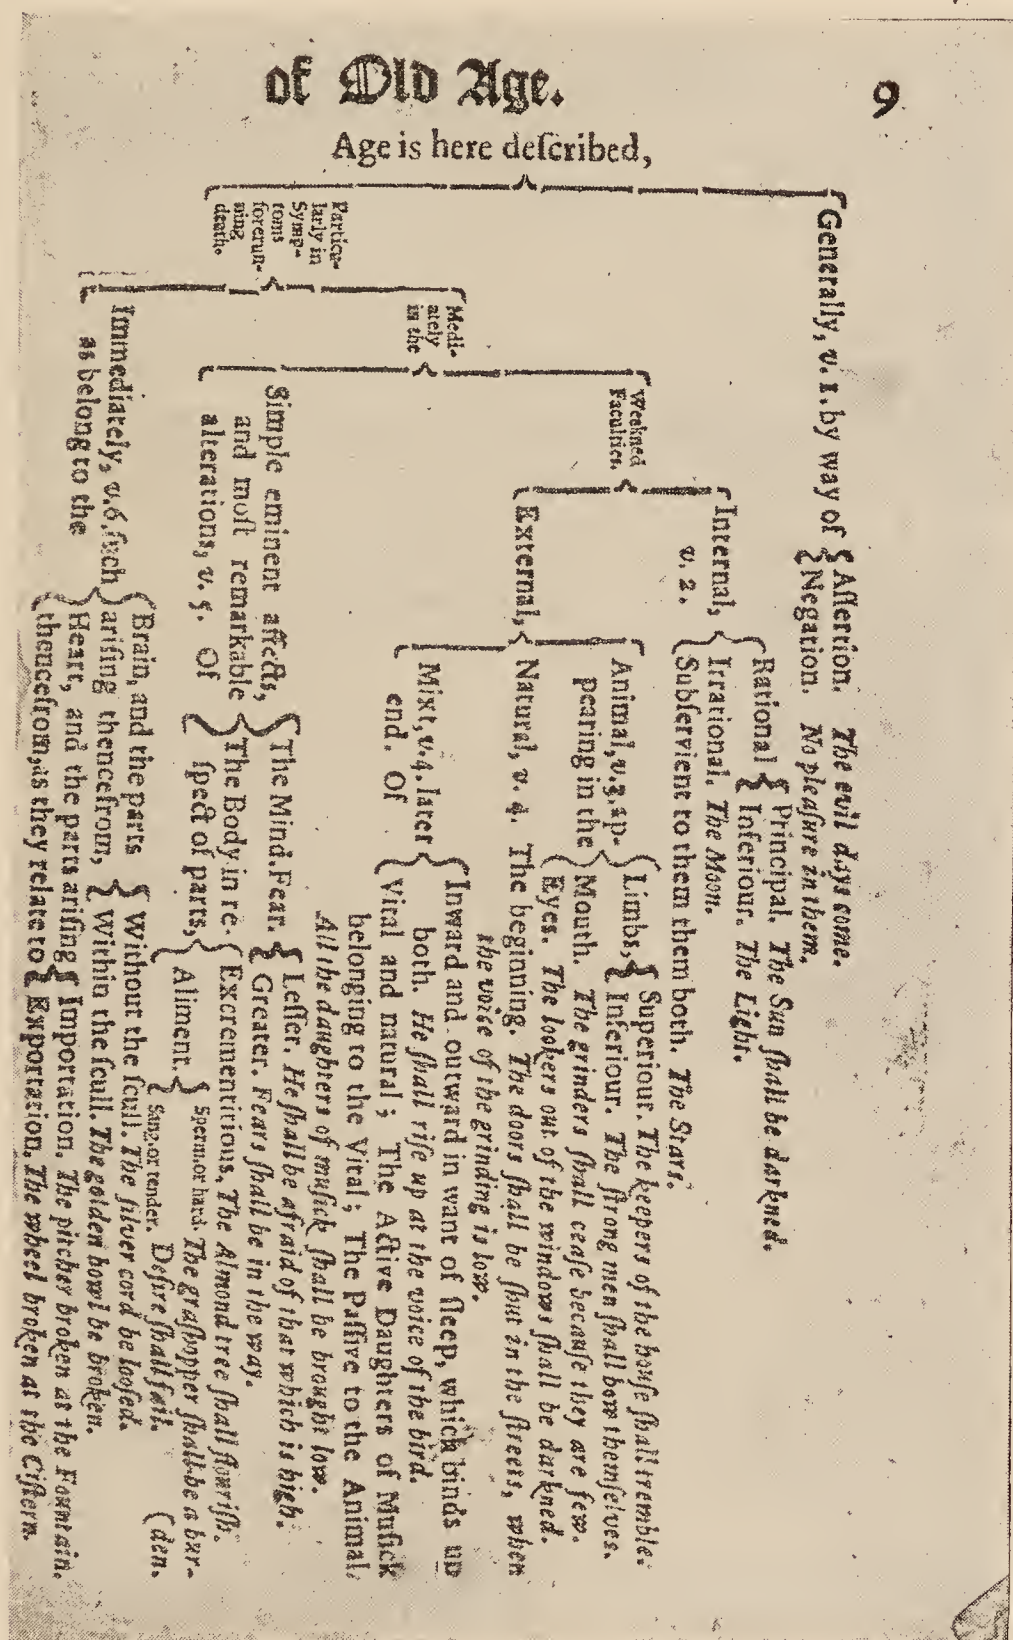 of Old Age.
9
Age is here deſcribed,
Generally, v. 1. by way of
Aſſertion. The evil days come.
Negation. No pleaſure in them.
Particu-
larly in
Symp-
toms
forerun-
ning
death.
Medi-
ately
in the
Weakned
Faculties.
Internal,
v. 2.
Rational
Principal. The Sun ſhall be darkned.
Inferiour. The Light.
Irrational. The Moon.
Subſervient to them them both. The Stars.
External,
Animal, v. 3. ap-
pearing in the
Limbs,
Superiour. The keepers of the houſe ſhall tremble.
Inferiour. The ſtrong men ſhall bow themſelves.
Mouth. The grinders ſhall ceaſe becauſe they are few.
Eyes. The lookers out of the windows ſhall be darkned.
Natural, v. 4. The beginning. The doors ſhall be ſhut in the ſtreets, when
the voice of the grinding is low.
Mixt, v. 4. later
end. Of
Inward and outward in want of ſleep, which binds up
both. He ſhall riſe up at the voice of the bird.
Vital and natural; The Active Daughters of Muſick
belonging to the Vital; The Paſſive to the Animal.
All the daughters of muſick ſhall be brought low.
Simple eminent affects,
and moſt remarkable
alterations, v. 5. Of
The Mind. Fear.
Leſſer. He ſhall be afraid of that which is high.
Greater. Fears ſhall be in the way.
The Body in re-
ſpect of parts,
Excrementitious. The Almond tree ſhall flouriſh.
Aliment.
Sperm. or hard. The graſhopper ſhall be a bur-
(den.
Sang. or tender. Deſire ſhall fail.
Immediately, v. 6. ſuch
as belong to the
Brain, and the parts
ariſing thencefrom,
Without the ſcull. The ſilver cord be looſed.
Within the ſcull. The golden bowl be broken.
Heart, and the parts ariſing
thencefrom, as they relate to
Importation. The pitcher broken at the Fountain.
Exportation. The wheel broken at the Ciſtern.